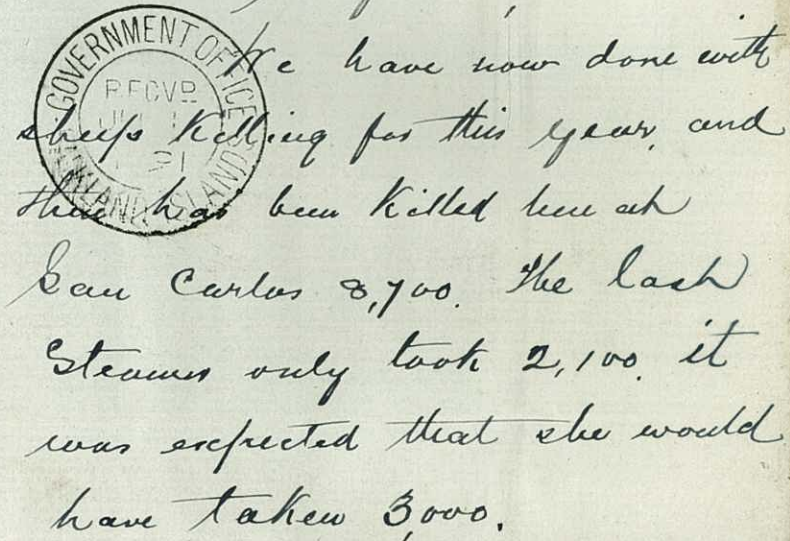 GOVERNMENT OFFICE
RECVD
91
FALKLAND ISLANDS
We have now done with
sheep Killing for this year, and
there has been Killed here at
San Carlos 8,700. The last
Steamer only took 2,100. it
was expected that she would
have taken 3,000.